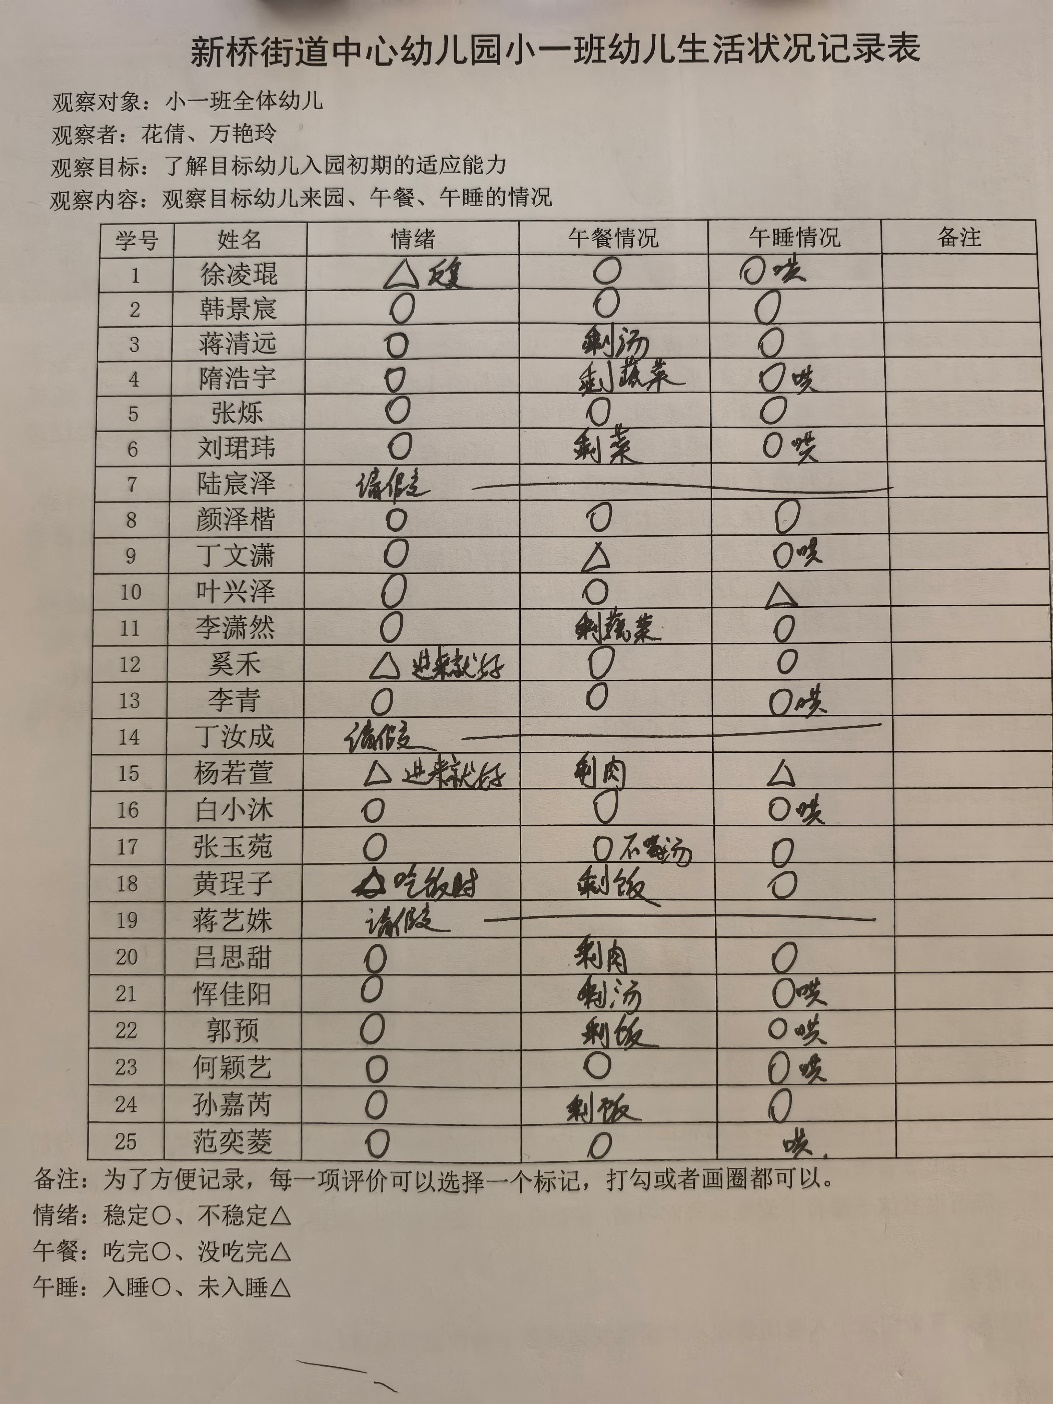 新桥街道中心幼儿园小一班幼儿生活状况记录表
观察对象：小一班全体幼儿
观察者：花倩、万艳玲
观察目标：了解目标幼儿入园初期的适应能力
观察内容：观察目标幼儿来园、午餐、午睡的情况
学号 姓名 情绪 午餐情况 午睡情况 备注
1 徐凌琨 △反复 ○ ○哄
2 韩景宸 ○ ○ ○
3 蒋清远 ○ 剩汤 ○
4 隋浩宇 ○ 剩蔬菜 ○哄
5 张烁 ○ ○ ○
6 刘珺玮 ○ 剩菜 ○哄
7 陆宸泽 请假
8 颜泽楷 ○ ○ ○
9 丁文潇 ○ △ ○哄
10 叶兴泽 ○ ○ △
11 李潇然 ○ 剩蔬菜 ○
12 奚禾 △进来就好 ○ ○
13 李青 ○ ○ ○哄
14 丁汝成 请假
15 杨若萱 △进来就好 剩肉 △
16 白小沐 ○ ○ ○哄
17 张玉菀 ○ ○不喝汤 ○
18 黄珵子 △吃饭时 剩饭 ○
19 蒋艺姝 请假
20 吕思甜 ○ 剩肉 ○
21 恽佳阳 ○ 剩汤 ○哄
22 郭预 ○ 剩饭 ○哄
23 何颖艺 ○ ○ ○哄
24 孙嘉芮 ○ 剩饭 ○
25 范奕菱 ○ ○ 哄.
备注：为了方便记录，每一项评价可以选择一个标记，打勾或者画圈都可以。
情绪：稳定○、不稳定△
午餐：吃完○、没吃完△
午睡：入睡○、未入睡△